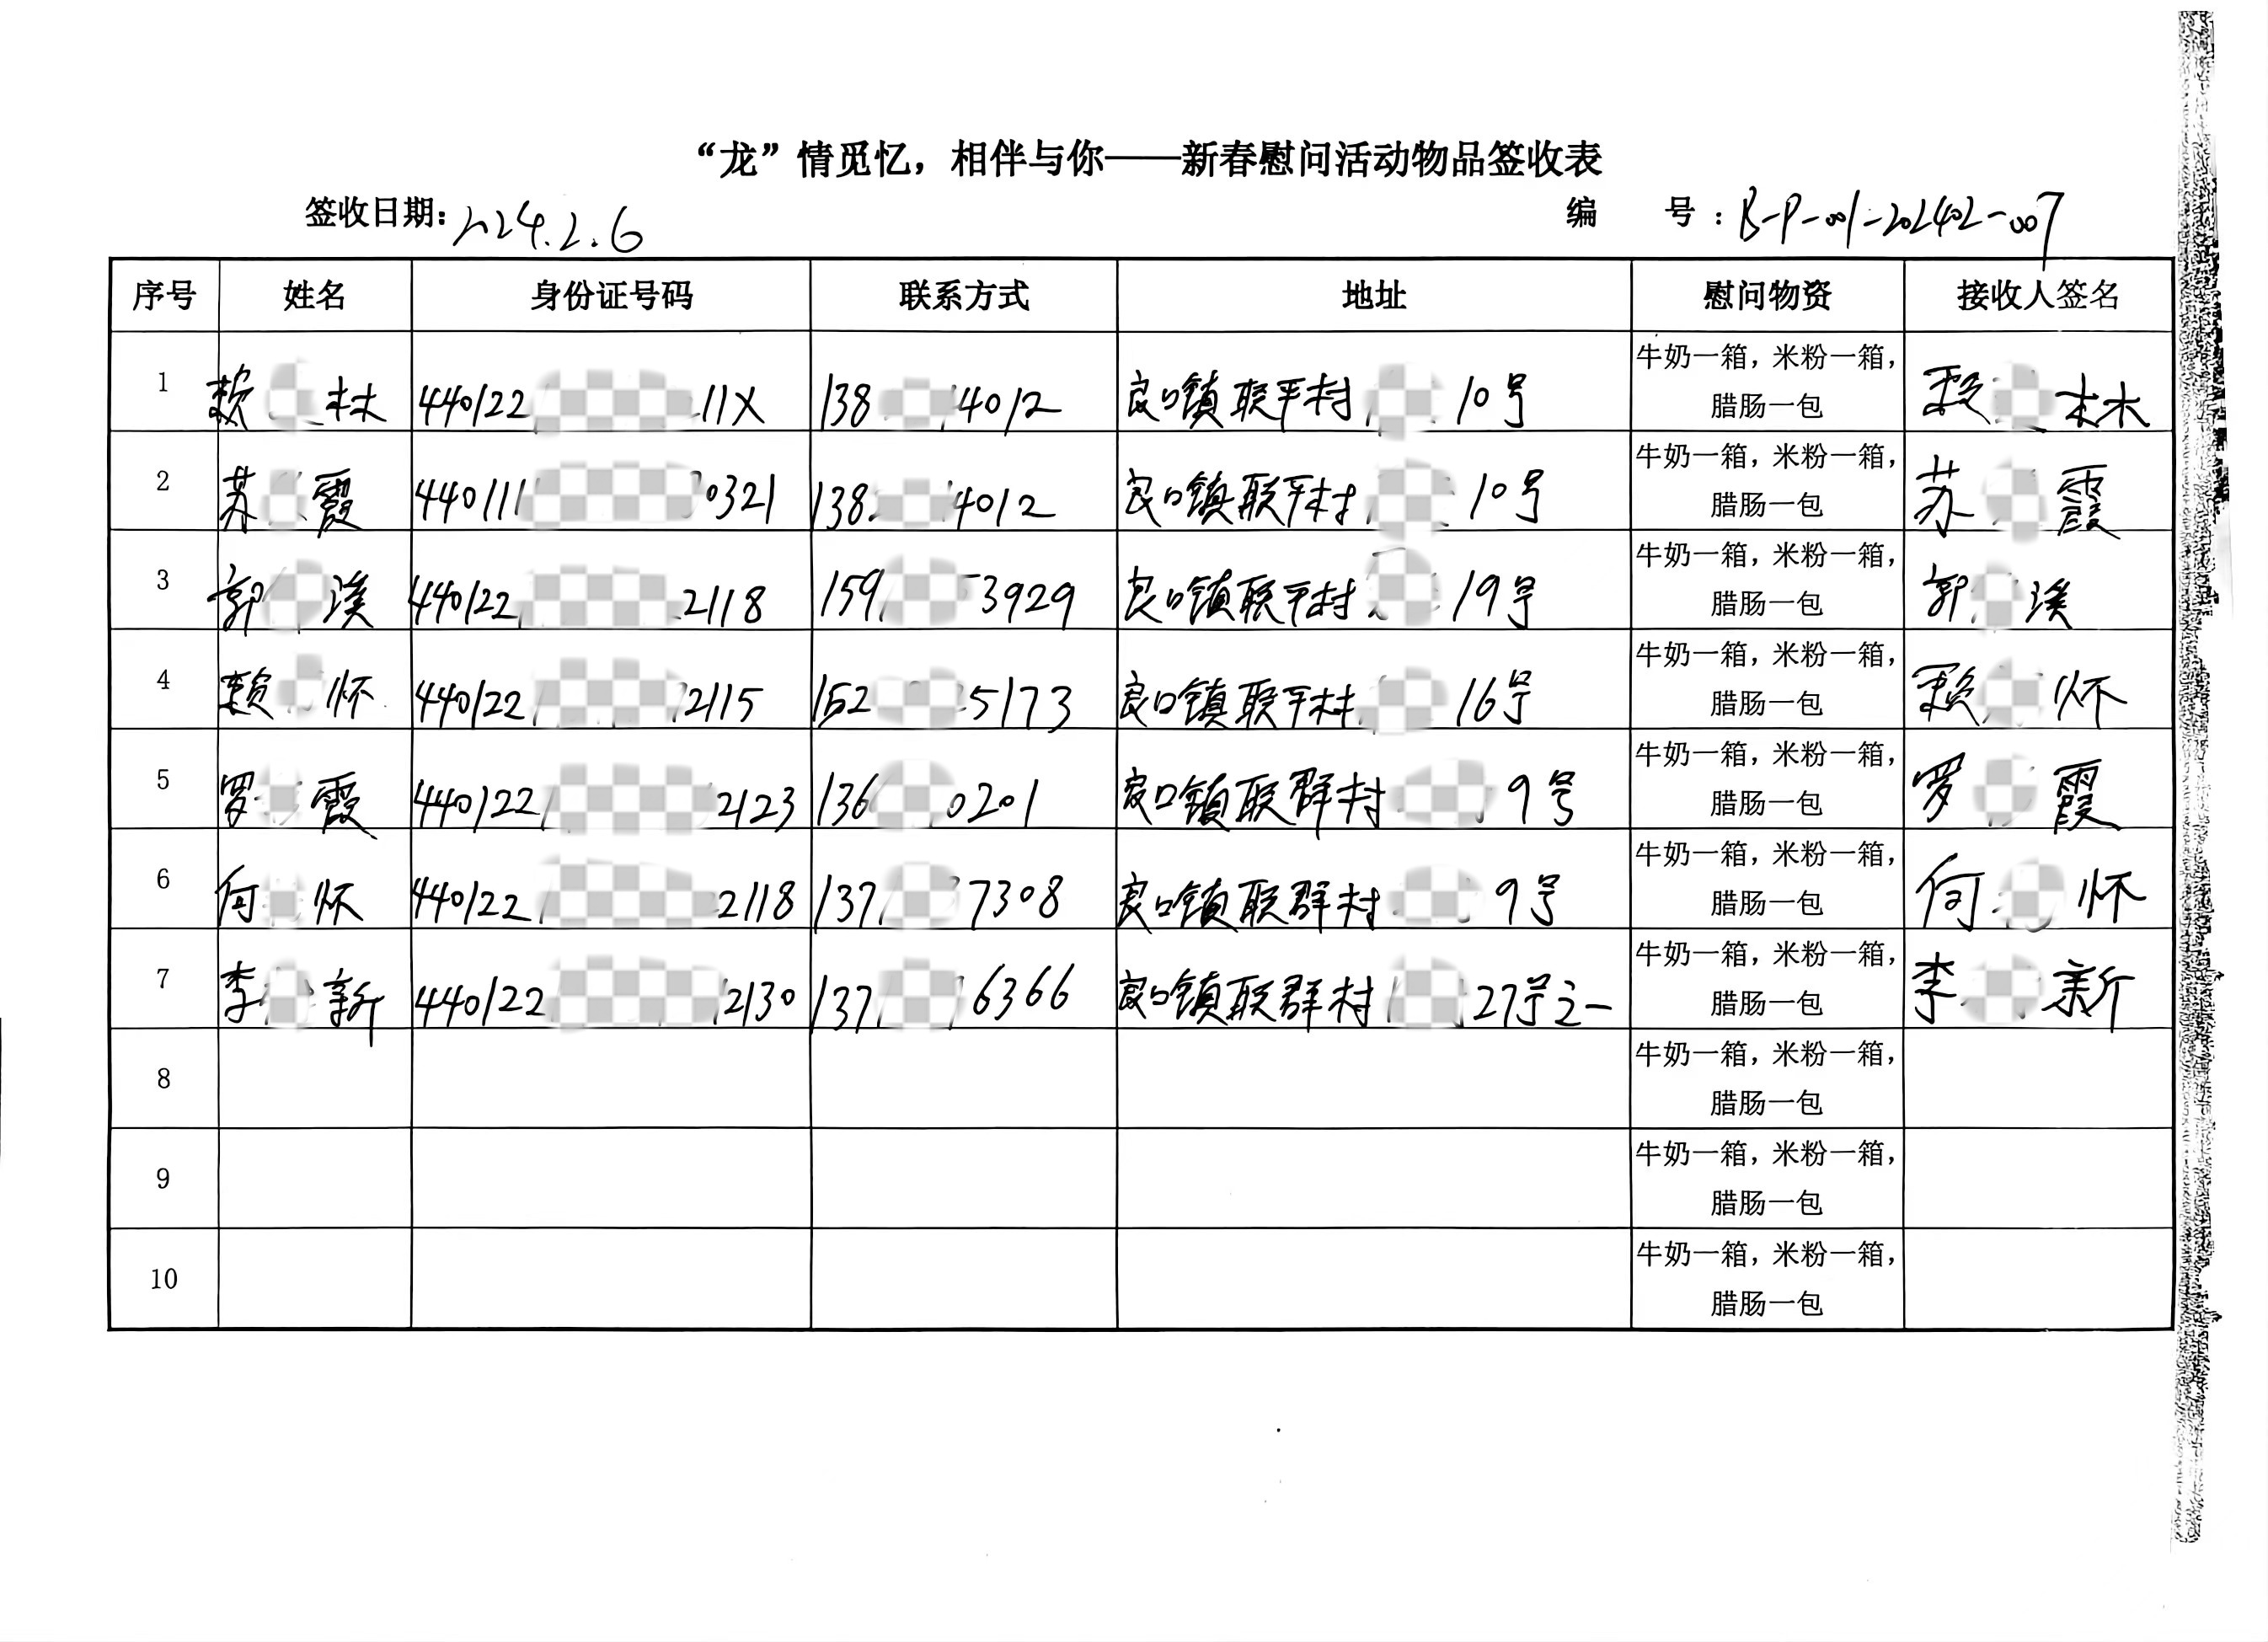 “龙”情觅忆，相伴与你——新春慰问活动物品签收表
签收日期：2024.2.6 编 号：B-P-001-202402-007
序号 姓名 身份证号码 联系方式 地址 慰问物资 接收人签名
1 赖 林 440122 11X 138 4012 良口镇联平村 10号 牛奶一箱，米粉一箱，腊肠一包 赖 林
2 苏 霞 440111 0321 138 4012 良口镇联平村 10号 牛奶一箱，米粉一箱，腊肠一包 苏 霞
3 郭 溪 440122 2118 159 3929 良口镇联平村 19号 牛奶一箱，米粉一箱，腊肠一包 郭 溪
4 赖 怀 440122 2115 152 5173 良口镇联平村 16号 牛奶一箱，米粉一箱，腊肠一包 赖 怀
5 罗 霞 440122 2123 136 0201 良口镇联群村 9号 牛奶一箱，米粉一箱，腊肠一包 罗 霞
6 何 怀 440122 2118 137 7308 良口镇联群村 9号 牛奶一箱，米粉一箱，腊肠一包 何 怀
7 李 新 440122 2130 137 6366 良口镇联群村 27号之一 牛奶一箱，米粉一箱，腊肠一包 李 新
8 牛奶一箱，米粉一箱，腊肠一包
9 牛奶一箱，米粉一箱，腊肠一包
10 牛奶一箱，米粉一箱，腊肠一包